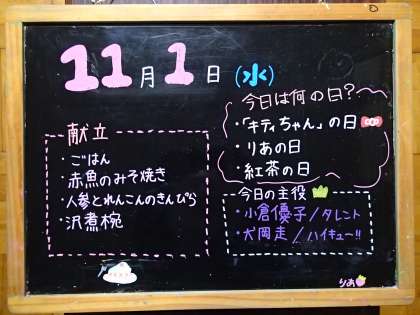 11月1日(水)
今日は何の日?
・「キティちゃん」の日
・りあの日
・紅茶の日
献立
・ごはん
・赤魚のみそ焼き
・人参とれんこんのきんぴら
・沢煮椀
今日の主役
・小倉優子/タレント
・犬岡走/ハイキュー!!
りあ